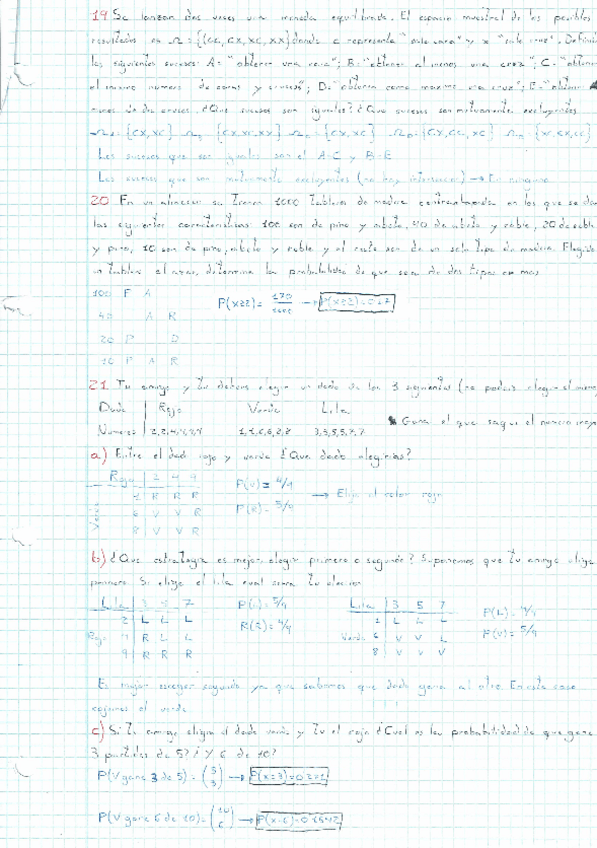 19 Se lanzan dos veces una moneda equilibrada. El espacio muestral de los posibles
resultados es Ω={CC, CX, XC, XX} donde c representa "sale cara" y x "sale cruz". Defini
los siguientes sucesos: A= "obtener una cara"; B="obtener al menos una cruz"; C= "obtener
el mismo numero de caras y cruces"; D="obtener como maximo una cruz"; E="obtener
menos de dos cruces. ¿Que sucesos son iguales? ¿Que sucesos son mutuamente excluyentes
= {CX, XC} = {CX, XC, XX} = {CX, XC} = {CX, CC, XC}
Los sucesos que son iguales son el A=C y B=E
Los sucesos que son mutuamente excluyentes (no hay interseccion) → En ninguno
20 En un almacen se tienen 1000 tablones de madera contrachapada en los que se dan
las siguientes caracteristicas: 100 son de pino y abeto, 40 de abeto y roble, 20 de roble
y pino, 10 son de pino, abeto y roble y el resto son de un solo tipo de madera. Elegido
un tablon al azar, determina la probabilidad de que sea de dos tipos o mas
100 P A
P(X≥2) = 170/1000 → P(X≥2)=0.17
40 A R
20 P R
10 P A R
21 Tu amigo y tu debeis elegir un dado de los 3 siguientes (no podeis elegir el mismo
Dado Rojo Verde Lila
Numeros 3,3,5,5,7,7
Gana el que saque el numero mayor
a) Entre el dado rojo y verde ¿Que dado elegirias?
Rojo 2 4 9
Verde
1 R R R
6 V V R
8 V V R
P(V)= 4/9
P(R)= 5/9
→ Elijo el color rojo
b) ¿Que estrategia es mejor, elegir primero o segundo? Suponemos que tu amigo elige
primero. Si elige el lila cual seria tu eleccion
Lila 3 5 7
Rojo
2 L L L
4 R L L
9 R R R
P(L)= 5/9
R(R)= 4/9
Lila 3 5 7
1 L L L
Verde 6 V V L
8 V V V
P(L)= 4/9
P(V)= 5/9
Es mejor escoger segundo ya que sabemos que dado gana al otro. En este caso
cojemos el verde
c) Si tu amigo eligira el dado verde y tu el rojo ¿Cual es la probabilidad de que gane
3 partidas de 5? ¿Y 6 de 10?
P(V gane 3 de 5) = (5 3) →
P(V gane 6 de 10) = (10 6) →